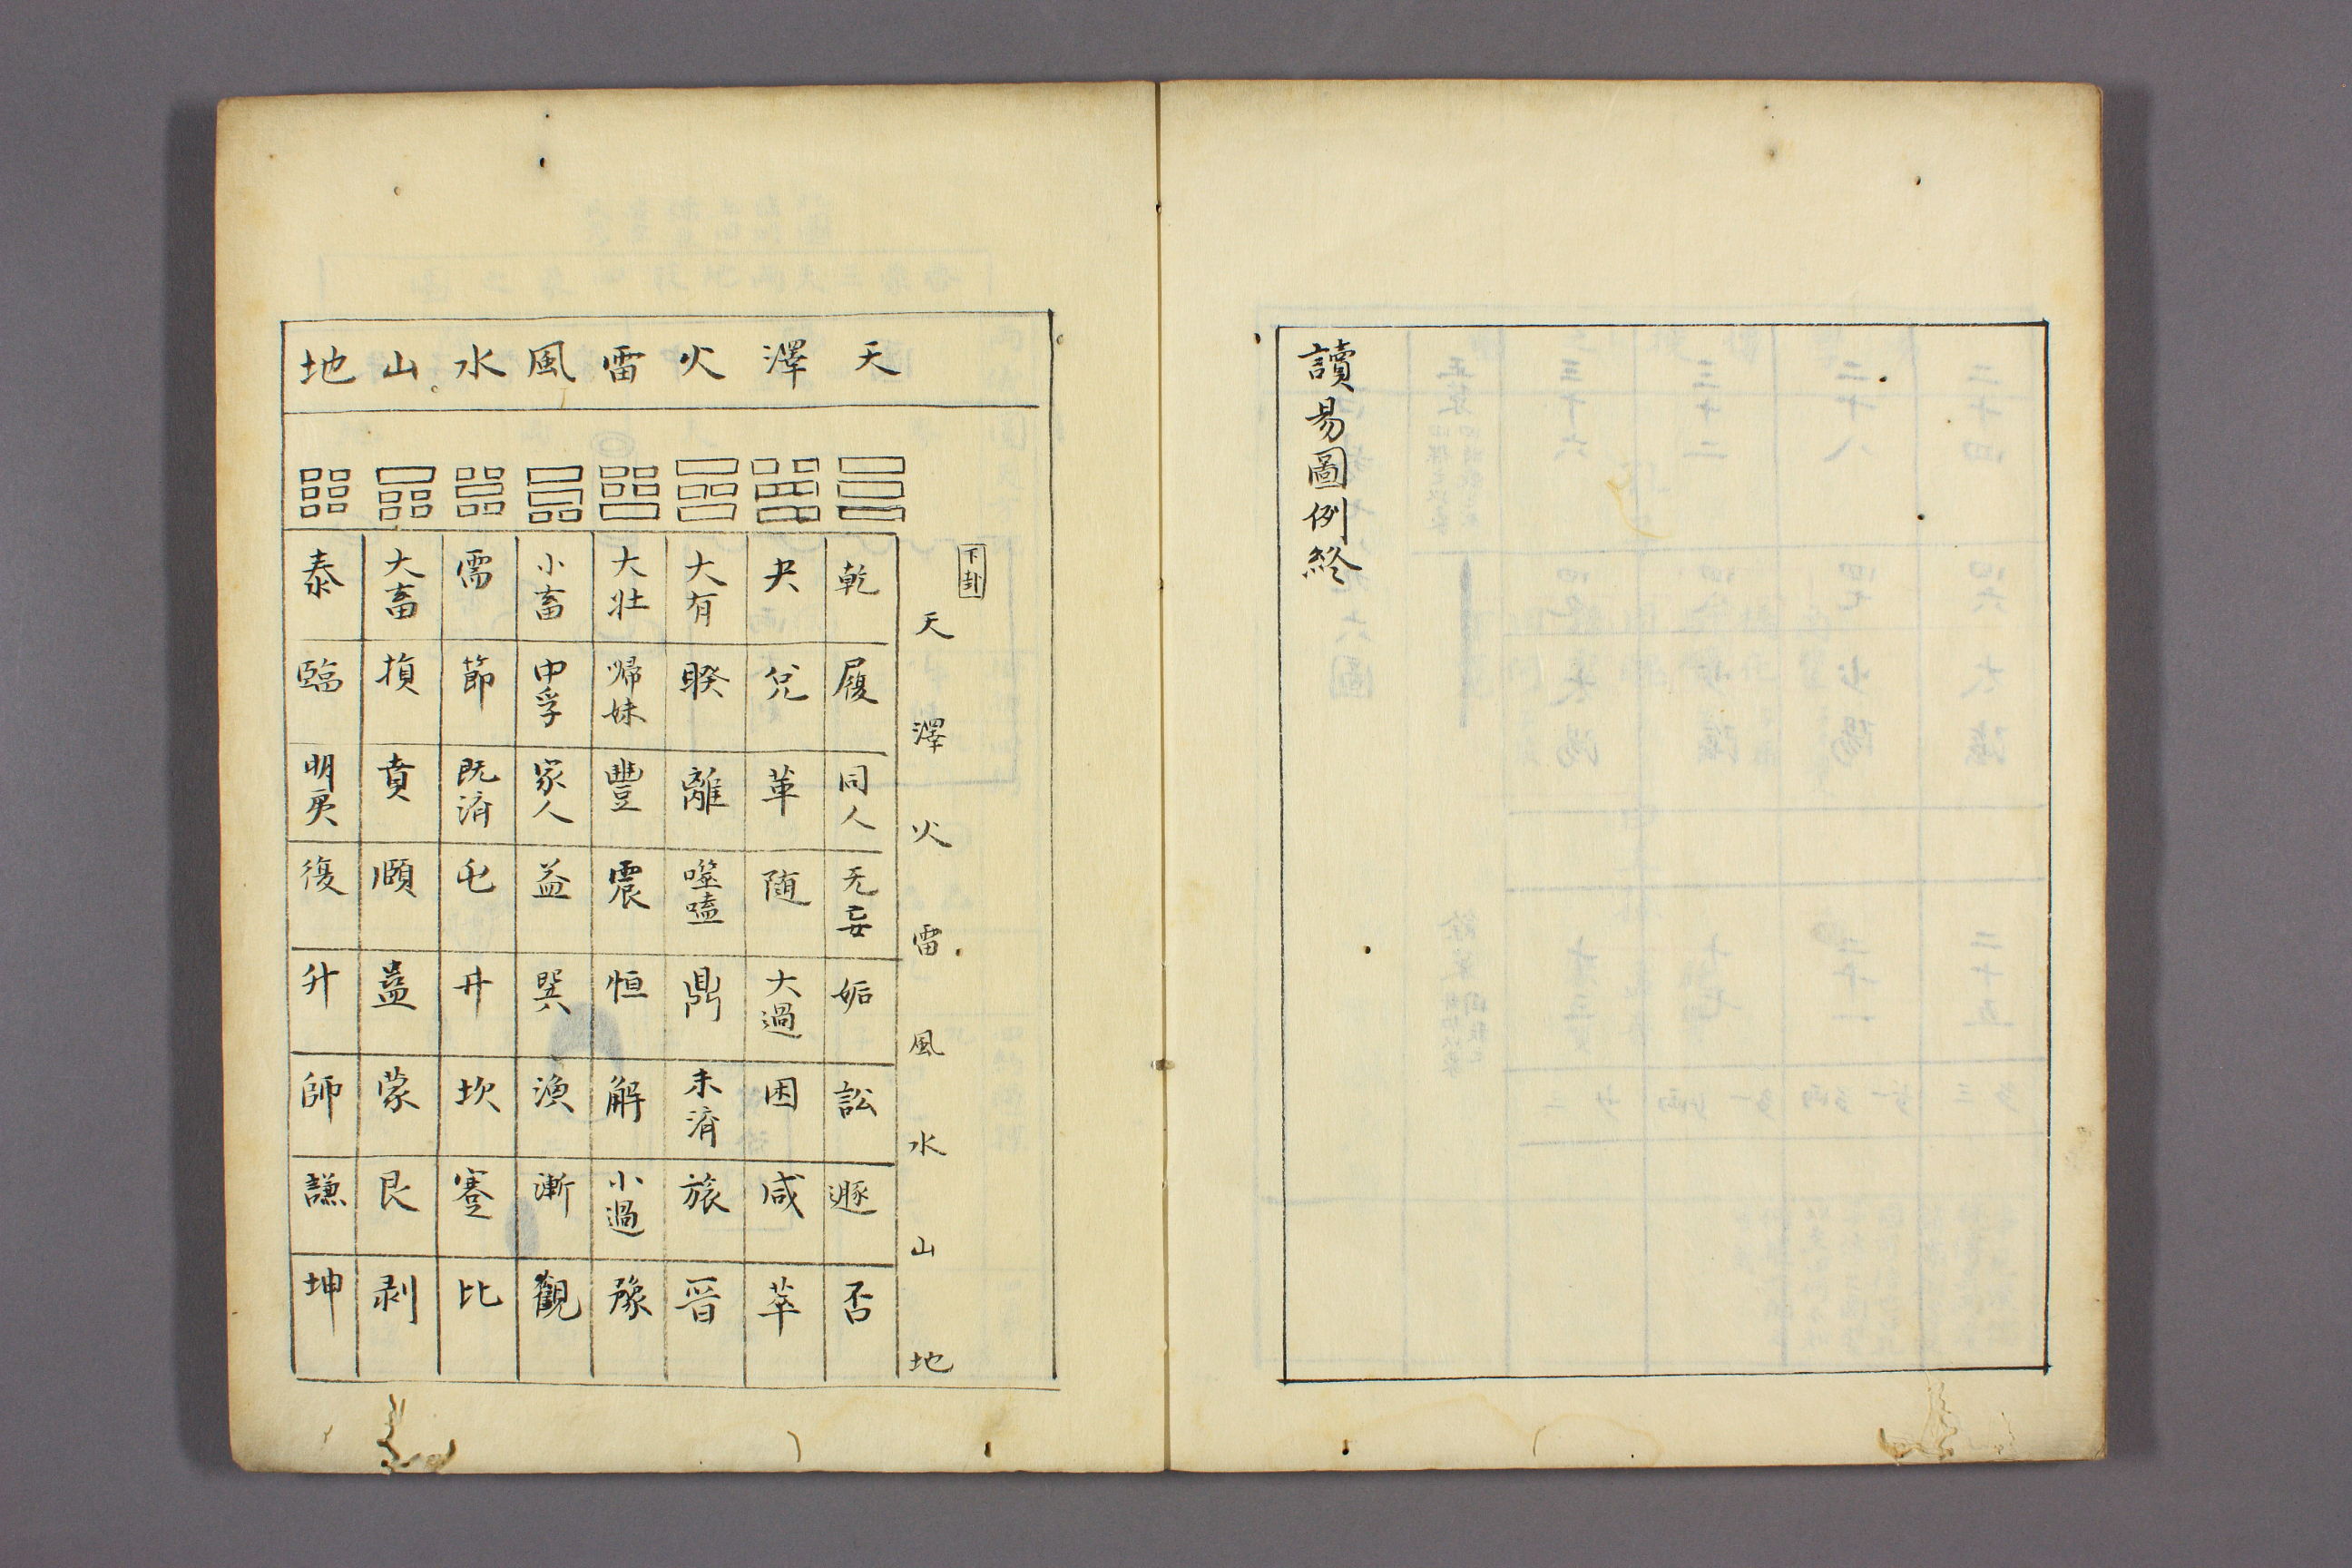 讀易圖例終
天澤火雷風水山地
下卦
天澤火雷風水山地
乾履同人无妄姤訟遯否
夬兌革随大過困咸萃
大有睽離噬嗑鼎未済旅晉
大壯歸妹豐震恒解小過豫
小畜中孚家人益巽渙漸觀
需節既済屯井坎蹇比
大畜損賁頤蠱蒙艮剥
泰臨明夷復升師謙坤